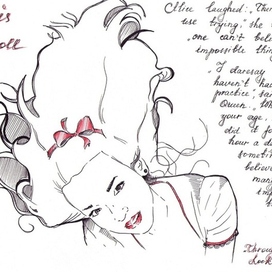 is
oll
Alice laughed: „There
use trying," she
„one can't believ
impossible thing
„I daresay
haven't ha
practice", sai
Queen. „Wh
your age,
did it f
hour a d
someti
believe
man
imp
t
Throug
Look